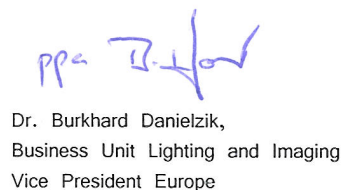 ppa
Dr. Burkhard Danielzik,
Business Unit Lighting and Imaging
Vice President Europe